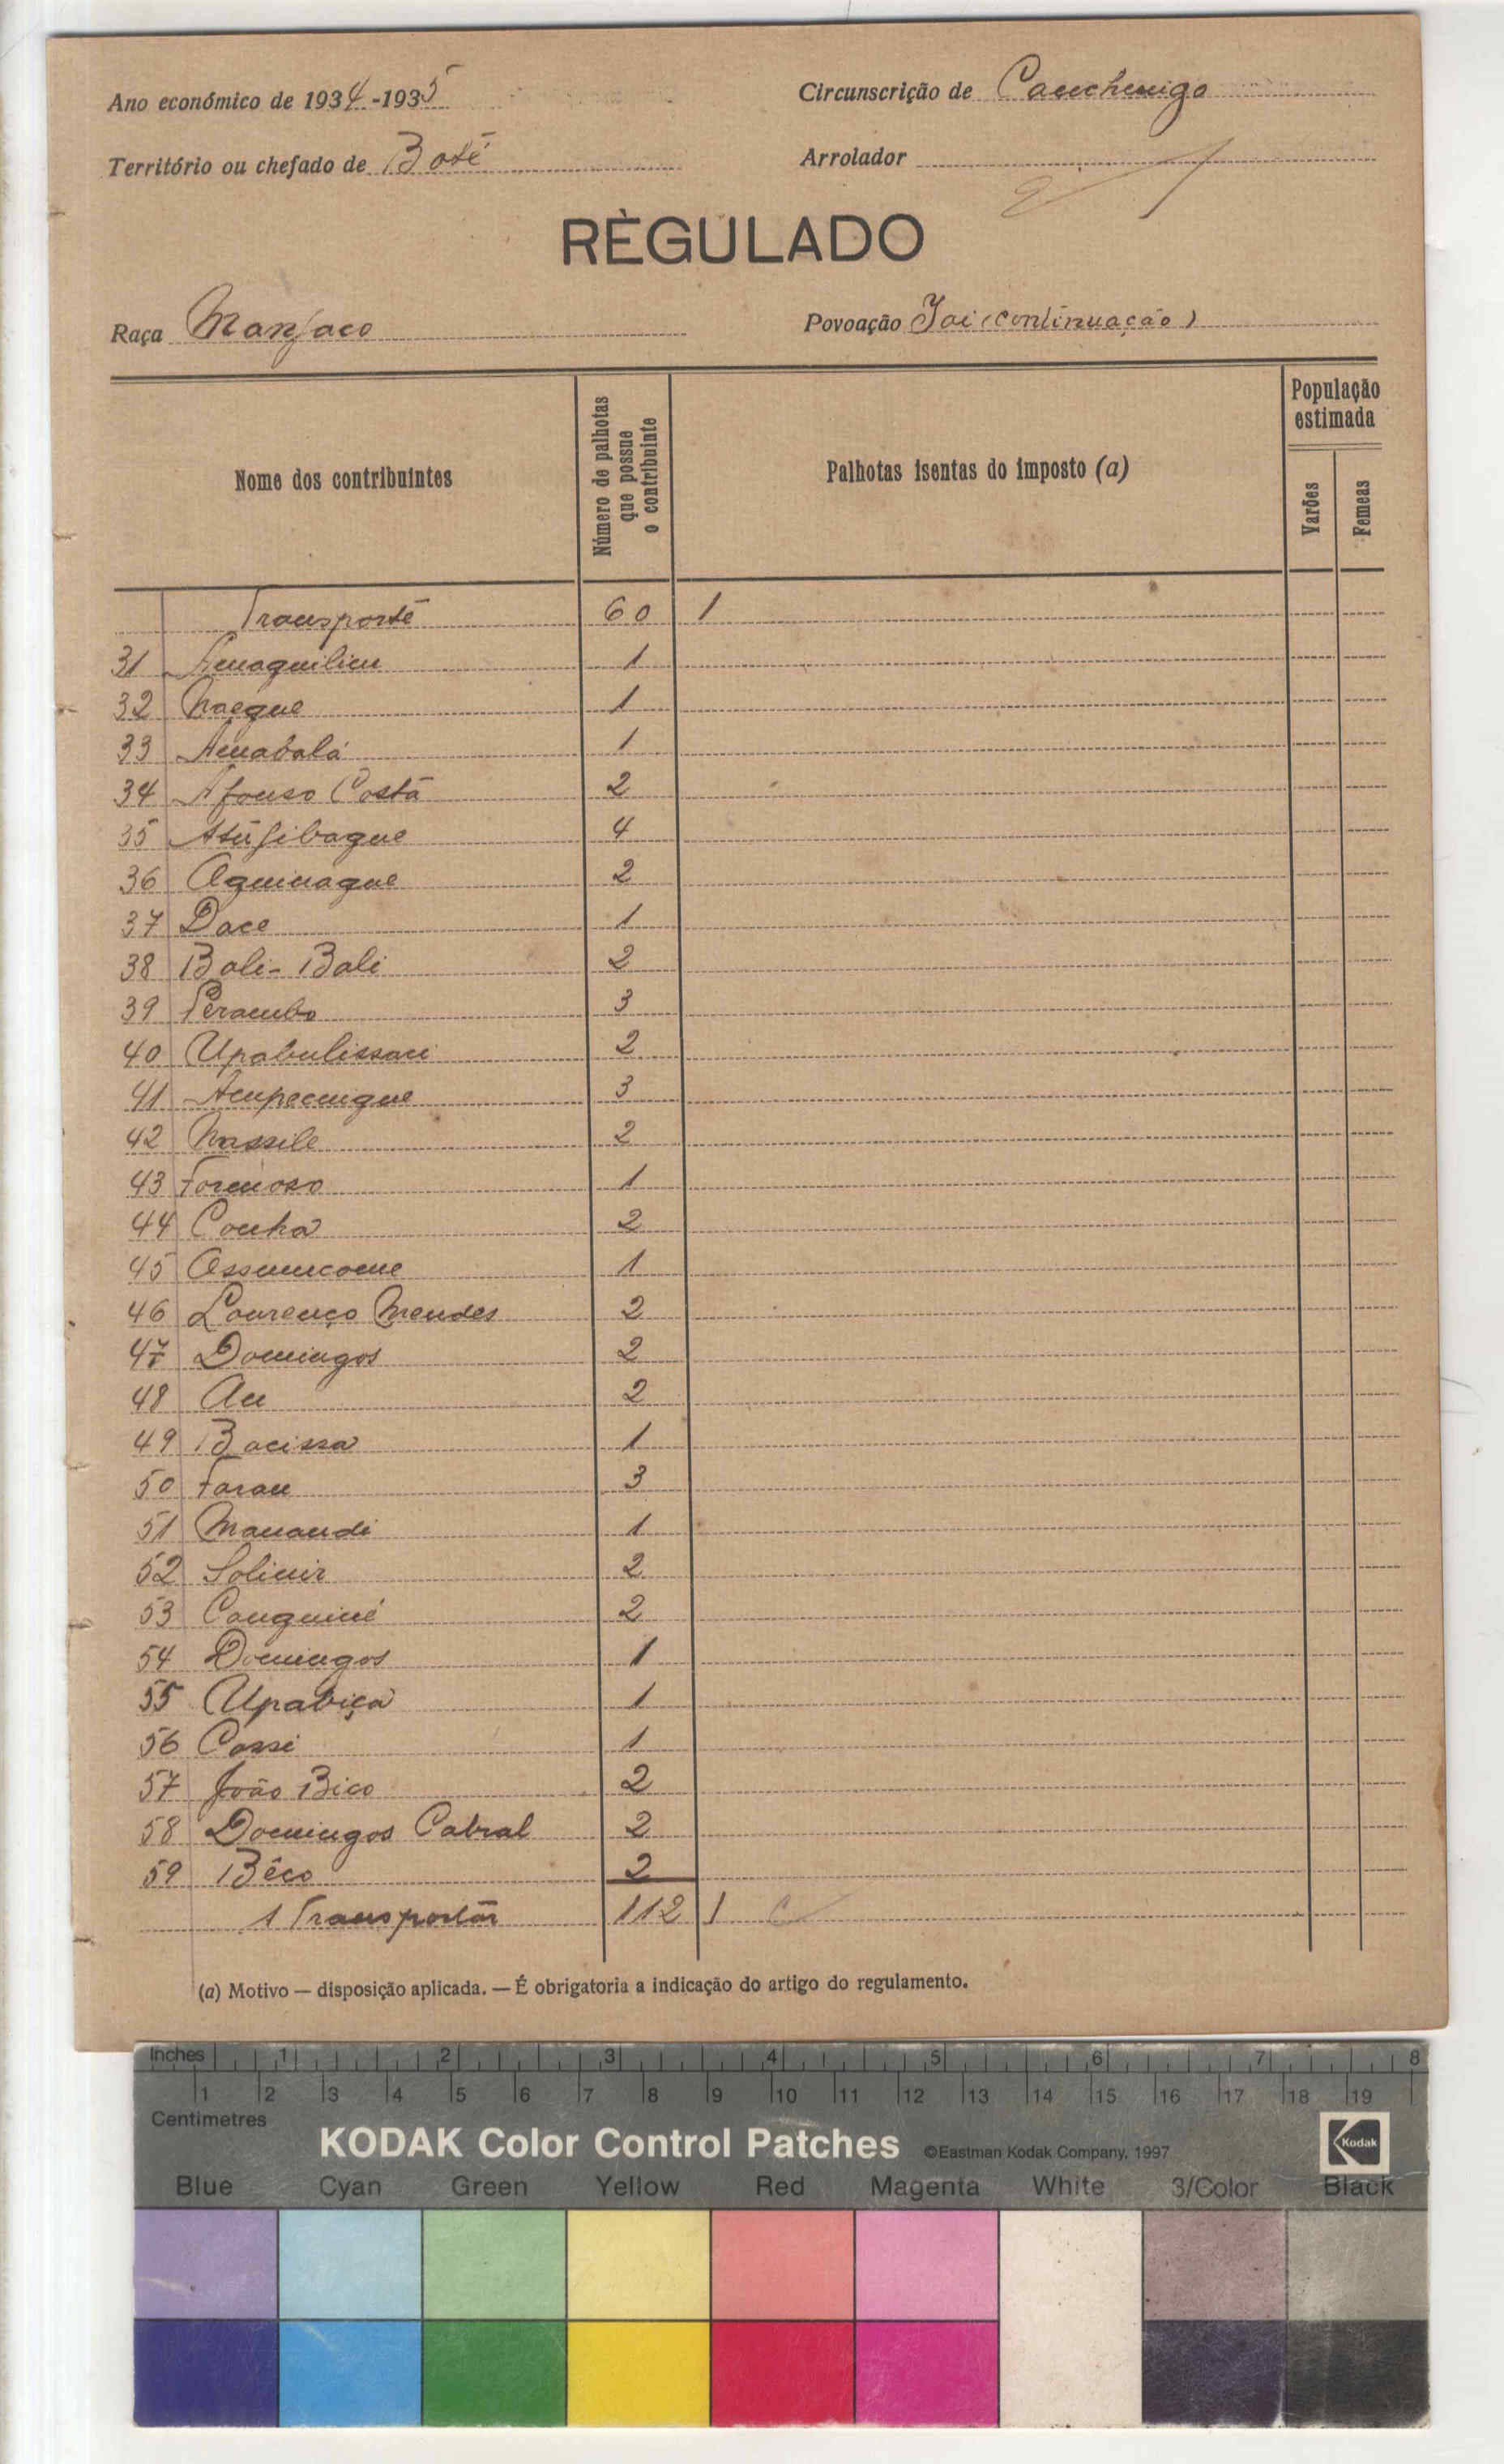 Ano económico de 1934-1935
Circunscrição de Canchungo
Território ou chefado de Boté
Arrolador
RÈGULADO
Raça Manjaco
Povoação Jai (continuação)
Nome dos contribuintes
Número de palhotas que possue o contribuinte
Palhotas isentas do imposto (a)
População estimada
Varões
Femeas
Transporte 60 1
31 1
32 Naeque 1
33 Amabalá 1
34 Afonso Costa 2
35 Atujibaque 4
36 Aguinaque 2
37 Dace 1
38 Bali-Bali 2
39 Perambo 3
40 Upabulissani 2
41 3
42 Nassile 2
43 Formoso 1
44 Conha 2
45 1
46 Lourenço Mendes 2
47 Domingos 2
48 2
49 Bacissa 1
50 Faran 3
51 Manandi 1
52 2
53 Canguiné 2
54 Domingos 1
55 Upabiça 1
56 Cassi 1
57 João Bico 2
58 Domingos Cabral 2
59 Bêco 2
A Transportar 112 1
(a) Motivo — disposição aplicada. — É obrigatoria a indicação do artigo do regulamento.
Inches 1 2 3 4 5 6 7 8
1 2 3 4 5 6 7 8 9 10 11 12 13 14 15 16 17 18 19
Centimetres
KODAK Color Control Patches ©Eastman Kodak Company, 1997 Kodak
Blue Cyan Green Yellow Red Magenta White 3/Color Black